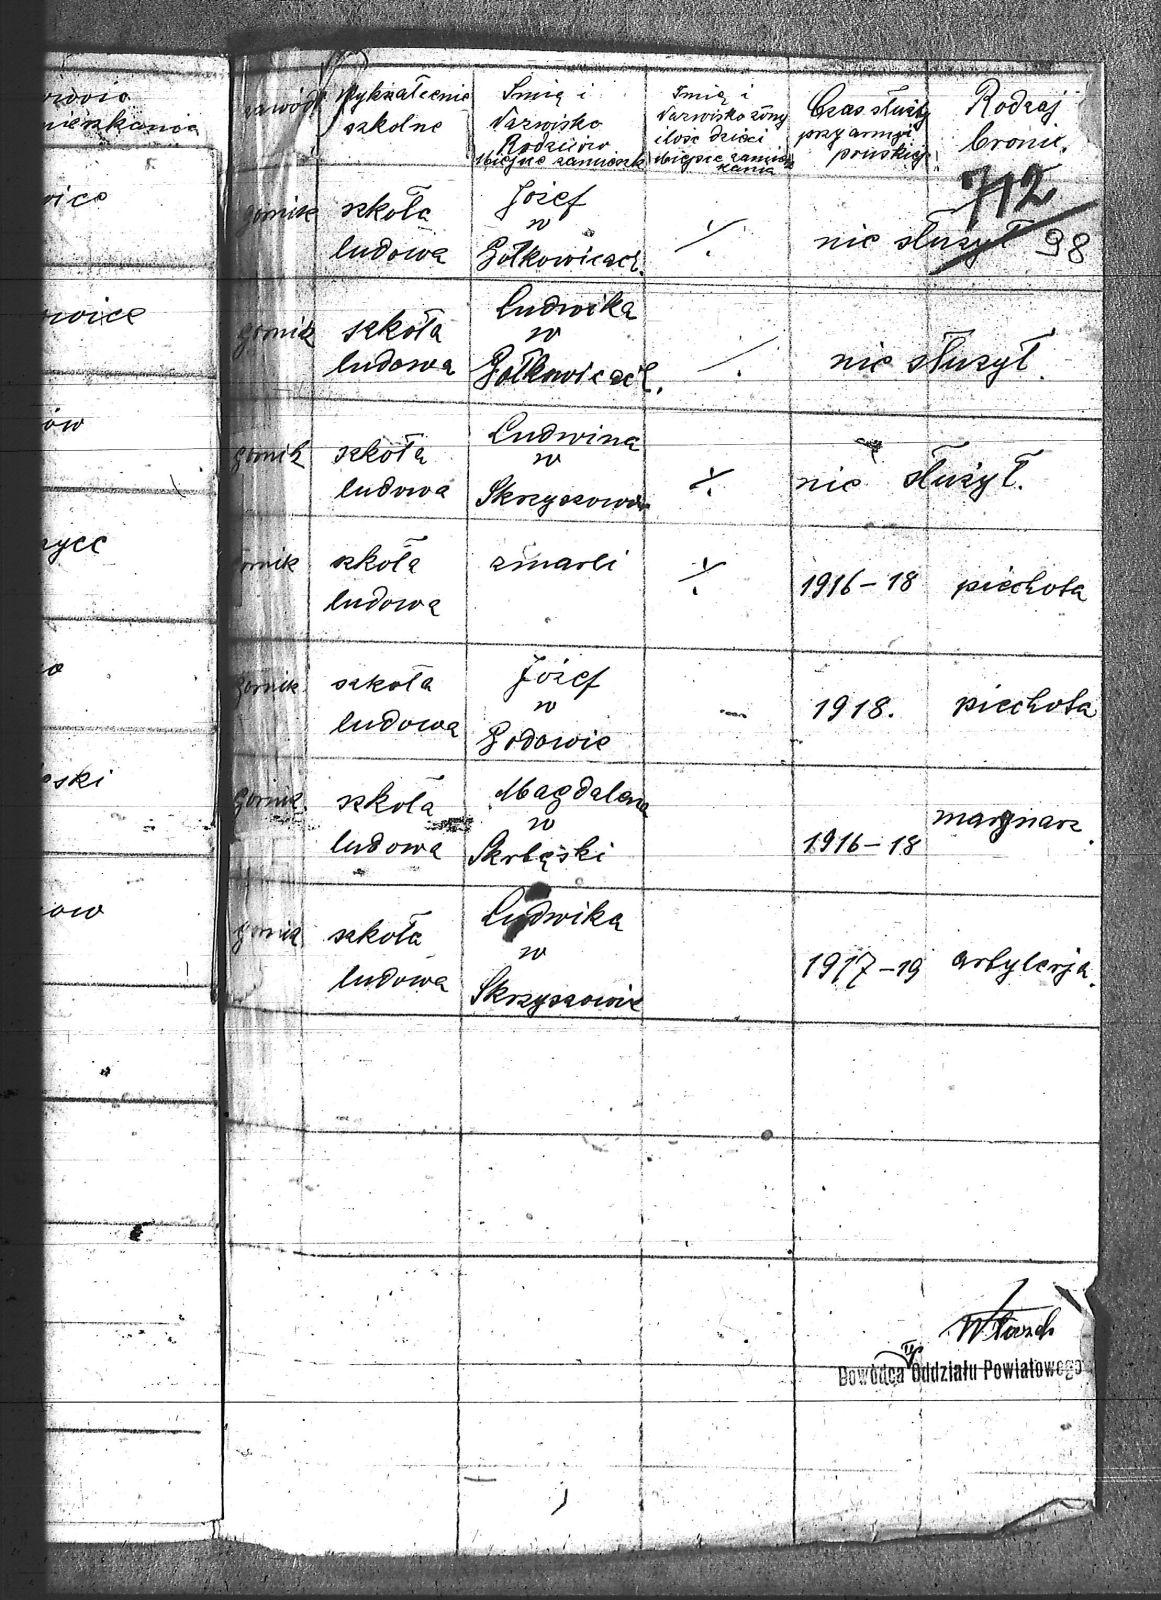 zawód
Wykształcenie
szkolne
Imię i
Nazwisko
Rodziców
Miejsce zamieszk
Imię i
Nazwisko żony
ilość dzieci
Miejsce zamiesz
kania
Czas służby
przy armji
pruskiej.
Rodzaj
broni.
712
98
górnik
szkoła
ludowa
Józef
w
Gołkowicach.
nie służył
górnik
szkoła
ludowa
Ludwika
w
Gołkowicach.
nie służył.
górnik
szkoła
ludowa
Ludwina
w
Skrzyszowie
nie służył.
górnik
szkoła
ludowa
zmarli
1916-18
piechota
górnik
szkoła
ludowa
Józef
w
Godowie
1918.
piechota
górnik
szkoła
ludowa
Magdalena
w
Skrbęski
1916-18
marynarz.
górnik
szkoła
ludowa
Ludwika
w
Skrzyszowie
1917-19
artylerja.
Dowódca Oddziału Powiatowego